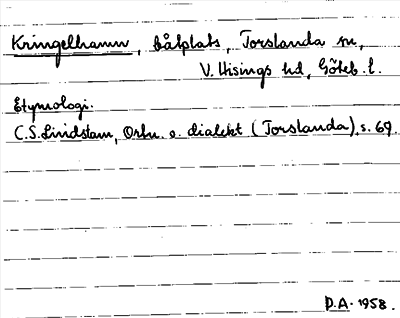 Kringelhamn, båtplats, Torslanda sn,
V. Hisings hd, Göteb. l.
Etymologi.
C.S. Lindstam, Ortn. o. dialekt (Torslanda), s. 69.
D.A. 1958.